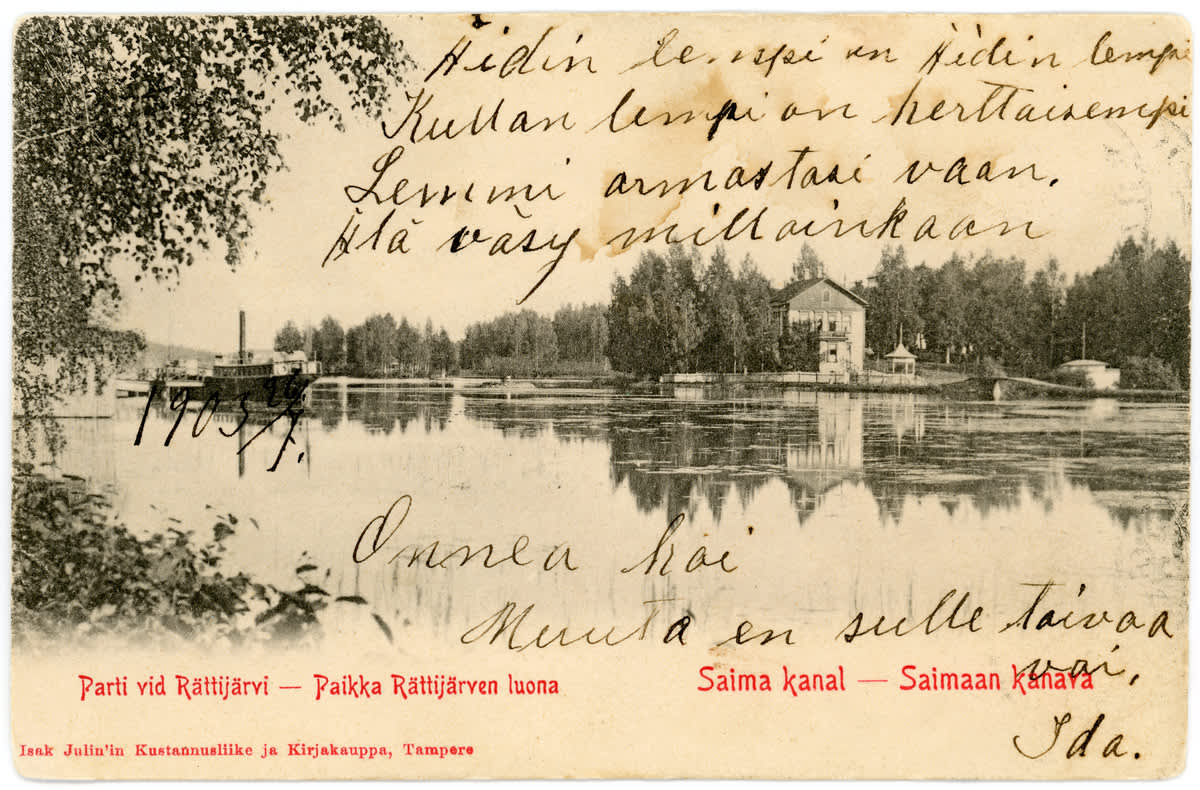 Äidin lempi on Äidin lempi
Kullan lempi on herttaisempi
Lemmi armastasi vaan.
Älä väsy milloinkaan
1903 26/7.
Onnea kai
Muuta en sulle toivaa
voi,
Ida.
Parti vid Rättijärvi — Paikka Rättijärven luona
Saima kanal — Saimaan kanava
Isak Julin'in Kustannusliike ja Kirjakauppa, Tampere